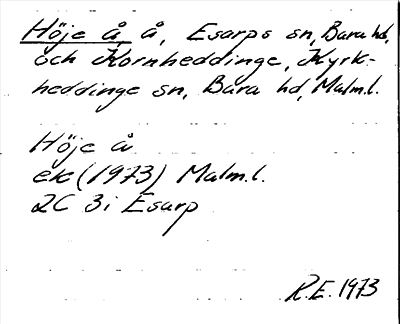 Höje å, å, Esarps sn, Bara hd,
och Kornheddinge, Kyrk-
heddinge sn, Bara hd, Malm.l.
Höje å
ek (1973) Malm.l.
2C 3i Esarp
R.E. 1973